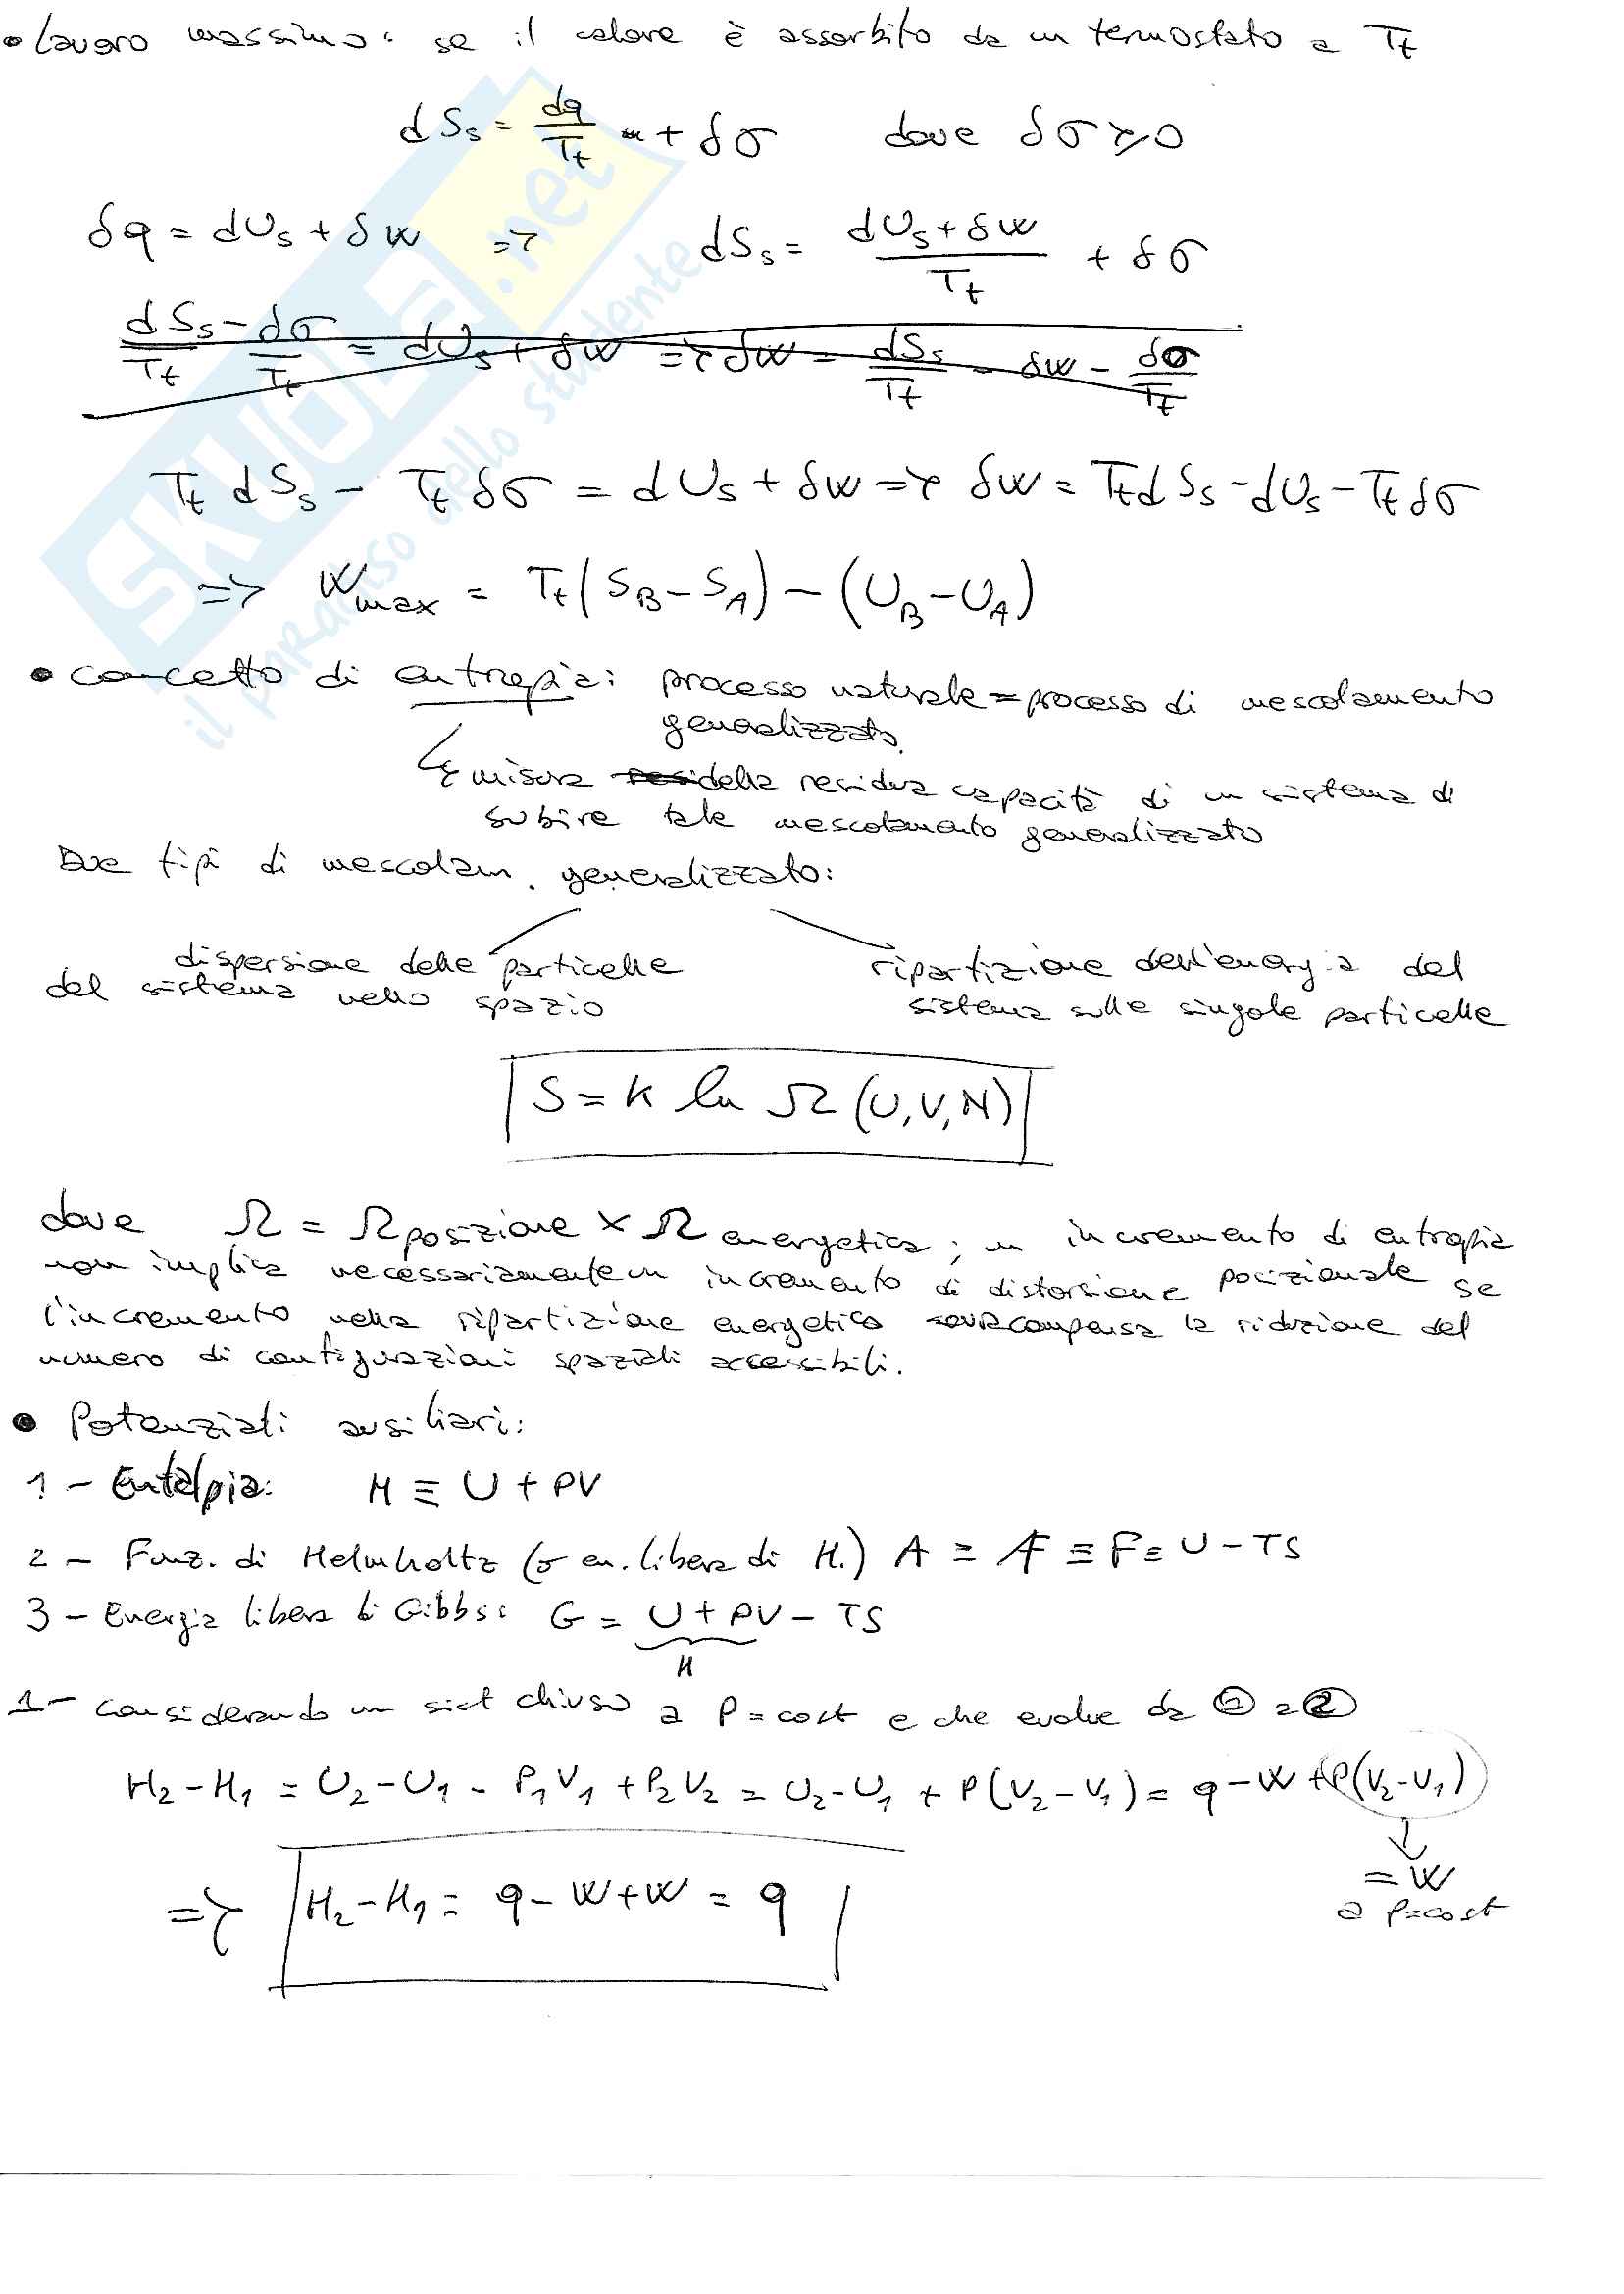 • Lavoro massimo: se il calore è assorbito da un termostato a Tt
dSs = dq/Tt + δσ dove δσ ≥ 0
δq = dUs + δw => dSs = (dUs + δw)/Tt + δσ
dSs/Tt - dσ/Tt = dUs + δw => δw = dSs/Tt - δw - δσ/Tt
Tt dSs - Tt δσ = dUs + δw => δw = Tt dSs - dUs - Tt δσ
=> Wmax = Tt (SB - SA) - (UB - UA)
• concetto di entropia: processo naturale = processo di mescolamento
generalizzato.
misura della residua capacità di un sistema di
subire tale mescolamento generalizzato
Due tipi di mescolam. generalizzato:
dispersione delle particelle
del sistema nello spazio
ripartizione dell'energia del
sistema sulle singole particelle
S = K ln Ω (U,V,N)
dove Ω = Ωposizione × Ωenergetica; un incremento di entropia
non implica necessariamente un incremento di distorsione posizionale se
l'incremento nella ripartizione energetica sovracompensa la riduzione del
numero di configurazioni spaziali accessibili.
• Potenziali ausiliari:
1 - Entalpia: H ≡ U + PV
2 - Funz. di Helmholtz (o en. libera di H.) A ≡ F ≡ F ≡ U - TS
3 - Energia libera di Gibbs: G = U + PV - TS
H
1 - considerando un sist chiuso a P = cost e che evolve da ① a ②
H2 - H1 = U2 - U1 - P1V1 + P2V2 = U2 - U1 + P(V2 - V1) = q - W + P(V2 - V1)
= W
a P = cost
=> H2 - H1 = q - W + W = q
SKUOLA.net
il paradiso dello studente